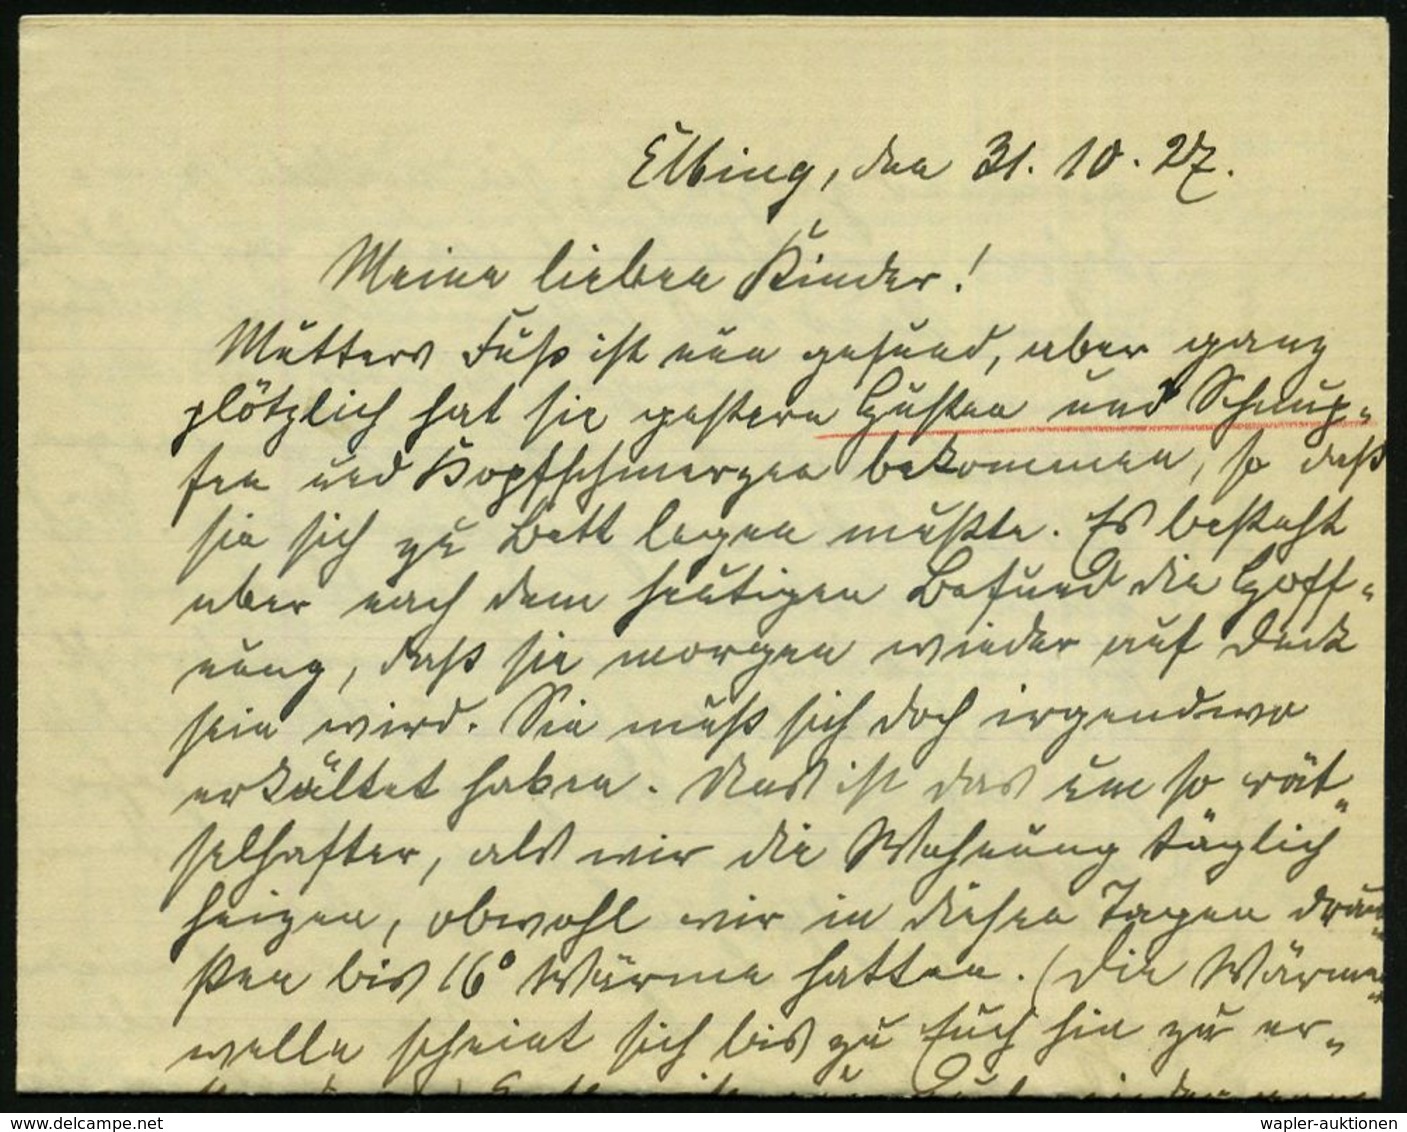 Elbing, den 31. 10. 27.
Meine lieben Kinder!
Mutters Fuß ist nun gesund, aber ganz
plötzlich hat sie gestern Husten und Schnup-
fen und Kopfschmerzen bekommen, so daß
sie sich zu Bett legen mußte. Es besteht
aber nach dem heutigen Befund die Hoff-
nung, daß sie morgen wieder auf Deck
sein wird. Sie muß sich doch irgendwo
erkältet haben. Uns ist das um so rät-
selhafter, als wir die Wohnung täglich
heizen, obwohl wir in diesen Tagen drau-
ßen bis 16° Wärme hatten. (Die Wärme-
welle scheint sich bis zu Euch hin zu er-
wapler-auktionen
© www.delcampe.net